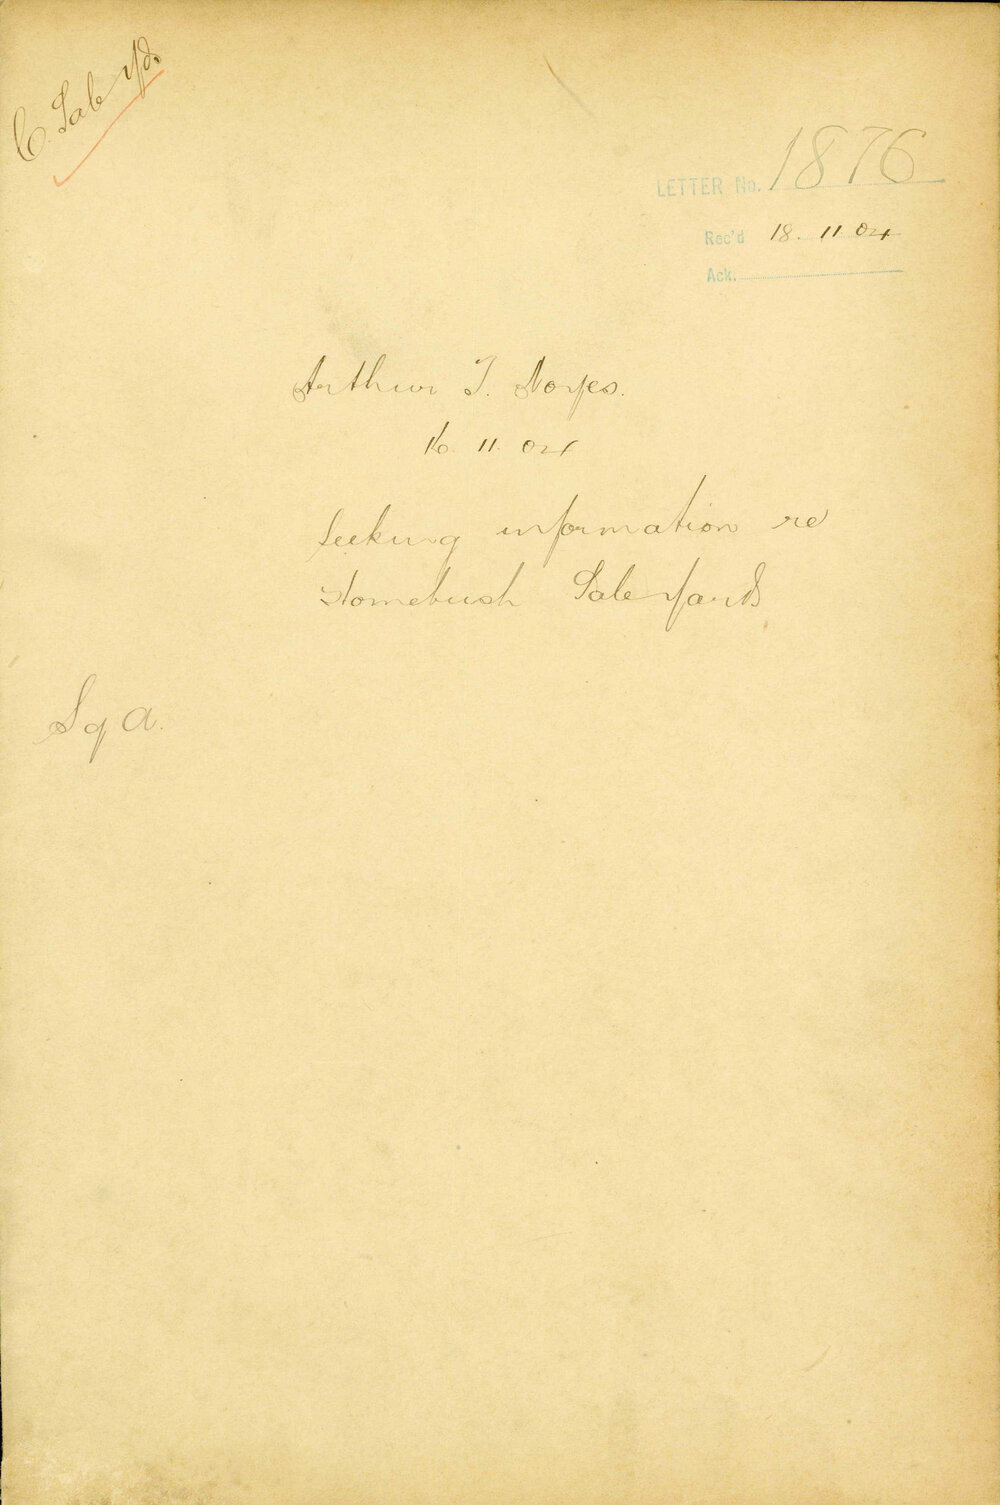 C. Sale Yds.
LETTER No. 1876
Rec'd 18. 11 04
Ack.
Arthur T. Noyes.
16 11. 04
Seeking information re
Homebush Sale Yards